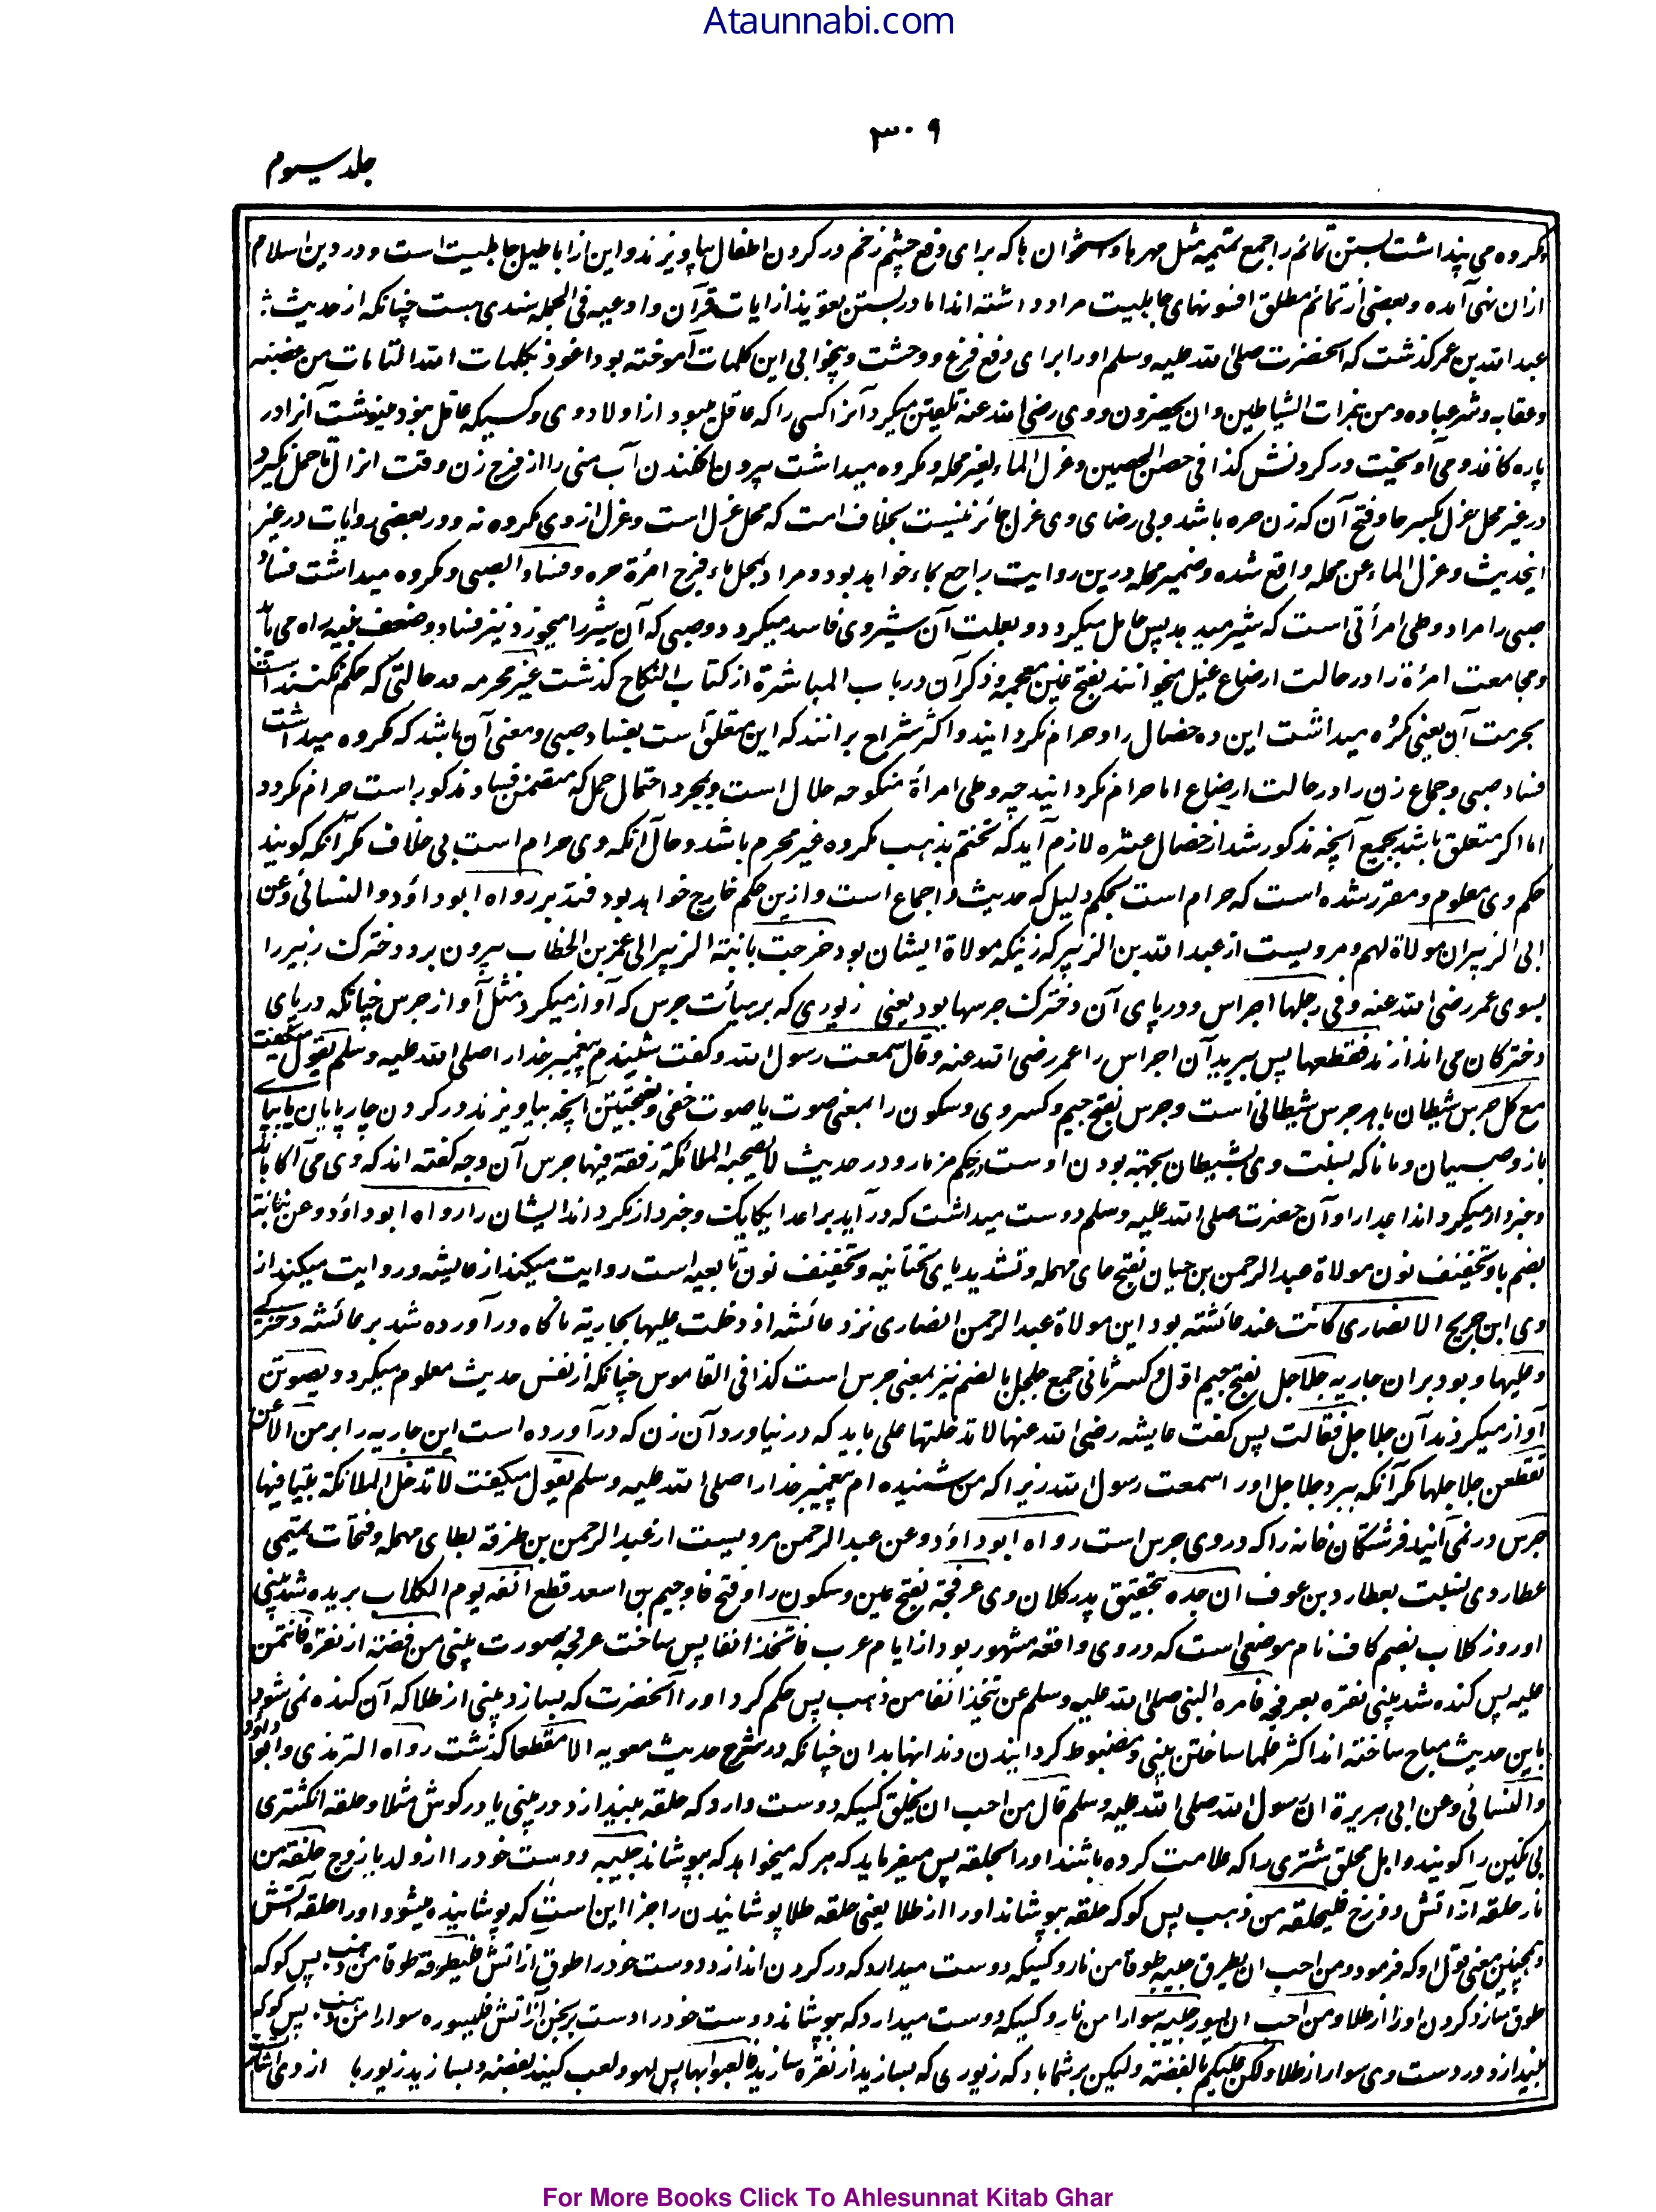 Ataunnabi.com
۳۰۹
جلد سیوم
مکروه می پنداشت بستن تمائم را جمع تمیمه مثل مهرها و استخوان ها که برای دفع چشم زخم در گردن اطفال بیاویزند و این از اباطیل جاهلیت است و در دین اسلام
ازان نهی آمده و بعضی از تمائم مطلق افسونهای جاهلیت مراد داشته اند اما در بستن تعویذ از آیات قرآن و ادعیه فی الجمله سندی هست چنانکه از حدیث
عبد الله بن عمر گذشت که آنحضرت صلی الله علیه وسلم او را برای دفع فزع و وحشت و بیخوابی این کلمات آموخته بود اعوذ بکلمات الله التامات من غضبه
وعقابه وشر عباده ومن همزات الشیاطین وان یحضرون و وی رضی الله عنه تلقین میکرد آنرا کسی را که عاقل میبود از اولاد وی و کسیکه عاقل نبود مینوشت آنرا در
پاره کاغذ و می آویخت در گردنش کذا فی حصن الحصین وعزل الماء لغیر محله و مکروه میداشت بیرون افکندن آب منی را از فرج زن وقت انزال تا حمل نگیرد
در غیر محل عزل بکسر حا و فتح آن که زن حره باشد و بی رضای وی عزل جائز نیست بخلاف امت که محل عزل است و عزل از وی مکروه نه و در بعضی روایات در غیر
اینحدیث وعزل الماء عن محله واقع شده و ضمیر محله درین روایت راجع بماء خواهد بود و مراد بمحل ماء فرج امرأة حره وفساد الصبی و مکروه میداشت فساد
صبی را مراد وطی امرأتی است که شیر میدهد پس حامل میگردد و بعلت آن شیر وی فاسد میگردد و صبی که آن شیر را میخورد نیز فساد و ضعف بنیه راه می یابد
و مجامعت امرأة را در حالت ارضاع غیل میخوانند بفتح غین معجمه و ذکر آن در باب المباشرة از کتاب النکاح گذشت غیر محرمه در حالتی که حکم نکننده است
بحرمت آن یعنی مکروه میداشت این ده خصال را و حرام نگردانید و اکثر شراح برانند که این متعلق است بفساد صبی و معنی آن باشد که مکروه میداشت
فساد صبی و جماع زن را در حالت ارضاع اما حرام نگردانید چه وطی امرأة منکوحه حلال است و بمجرد احتمال حمل که متضمن فساد مذکور است حرام نگردد
اما اگر متعلق باشد بجمیع آنچه مذکور شد از خصال عشره لازم آید که تختم بذهب مکروه غیر محرم باشد و حال آنکه وی حرام است بی خلاف مگر آنکه گویند
حکم وی معلوم و مقرر شده است که حرام است بحکم دلیل که حدیث و اجماع است و ازین حکم خارج خواهد بود فتدبر رواه ابو داؤد والنسائی وعن
ابی الزبیر ان مولاة لهم و مرویست از عبد الله بن الزبیر که زنیکه مولاة ایشان بود خرجت بابنة الزبیر الی عمر بن الخطاب بیرون برد دخترک زبیر را
بسوی عمر رضی الله عنه وفی رجلها اجراس و در پای آن دخترک جرسها بود یعنی زیوری که بر هیأت جرس که آواز میکرد مثل آواز جرس چنانکه در پای
دخترکان می اندازند فقطعها پس ببرید آن اجراس را عمر رضی الله عنه وقال سمعت رسول الله و گفت شنیدم پیغمبر خدا را صلی الله علیه وسلم یقول میگفت
مع کل جرس شیطان با هر جرس شیطانی است و جرس بفتح جیم و کسر وی و سکون را بمعنی صوت یا صوت خفی و بفتحتین آنچه بیاویزند در گردن چارپایان یا بپای
باز و صبیان و مانا که نسبت وی بشیطان بجهته بودن اوست در حکم مزمار و در حدیث لا تصحب الملائکة رفقة فیها جرس آن وجه گفته اند که وی می آگاهاند
و خبردار میگرداند اعدا را و آن حضرت صلی الله علیه وسلم دوست میداشت که درآید بر اعدا یکایک و خبردار نگرداند ایشان را رواه ابو داؤد وعن بنانة
بضم با و تخفیف نون مولاة عبد الرحمن بن حیان بفتح حای مهمله و تشدید یای تحتانیه و تخفیف نون تابعیه است روایت میکند از عایشه و روایت میکند از
وی ابن جریج الانصاری کانت عند عائشة بود این مولاة عبد الرحمن انصاری نزد عائشه اذ دخلت علیها بجاریة ناگاه درآورده شد بر عائشه دخترکی
وعلیها و بود بران جاریه جلاجل بفتح جیم اول و کسر ثانی جمع جلجل بالضم نیز بمعنی جرس است کذا فی القاموس چنانکه از نفس حدیث معلوم میگردد یصوتن
آواز میکردند آن جلاجل فقالت پس گفت عایشه رضی الله عنها لا تدخلنها علی باید که در نیاورد آن زن که درآورده است این جاریه را بر من الا ان
تقطعن جلاجلها مگر آنکه ببرد جلاجل او را سمعت رسول الله زیرا که من شنیده ام پیغمبر خدا را صلی الله علیه وسلم یقول میگفت لا تدخل الملائکة بیتا فیها
جرس در نمی آیند فرشتگان خانه را که در وی جرس است رواه ابو داؤد وعن عبد الرحمن مرویست از عبد الرحمن بن طرفة بطای مهمله و فتحات تمیمی
عطاردی بنسبت بعطارد بن عوف ان جده بتحقیق پدر کلان وی عرفجة بفتح عین و سکون را و فتح فا و جیم بن اسعد قطع انفه یوم الکلاب بریده شد بینی
او روز کلاب بضم کاف نام موضعی است که در وی واقعه مشهور بود از ایام عرب فاتخذ انفا پس ساخت عرفجه بصورت بینی من فضة از نقره فانتن
علیه پس گنده شد بینی نقره بعرفجه فامره النبی صلی الله علیه وسلم عن یتخذ انفا من ذهب پس حکم کرد او را آنحضرت که بسازد بینی از طلا که آن گنده نمی شود
باین حدیث مباح ساخته اند اکثر علما ساختن بینی و مضبوط گردانیدن دندانها بدان چنانکه در شرح حدیث معویه الا مقطعا گذشت رواه الترمذی وابو داؤد
والنسائی وعن ابی هریرة ان رسول الله صلی الله علیه وسلم قال من احب ان یحلق کسیکه دوست دارد که حلقه بیندازد در بینی یا در گوش مثلا و حلقه انگشتری
بی نگین را گویند و ابل محلق شتری را که علامت کرده باشند او را بحلقه پس میفرماید که هر که میخواهد که بپوشاند حبیبه دوست خود را از ولد یا زوج حلقة من
نار حلقه از آتش دوزخ فلیحلقه من ذهب پس گو که حلقه بپوشاند او را از طلا یعنی حلقه طلا پوشانیدن را جزا این است که پوشانیده میشود او را حلقه آتش
و همچنین معنی قول او که فرمود ومن احب ان یطوق حبیبه طوقا من نار و کسیکه دوست میدارد که در گردن اندازد دوست خود را طوق از آتش فلیطوقه طوقا من ذهب پس گو که
طوق سازد گردن او را از طلا ومن احب ان یسور حبیبه سوارا من نار و کسیکه دوست میدارد که بپوشاند دوست خود را دست برنجن از آتش فلیسوره سوارا من ذهب پس گو که
بیندازد در دست وی سوار از طلا ولکن علیکم بالفضة ولیکن بر شما باد که زیوری که بسازید از نقره سازید فالعبوا بها پس لهو و لعب کنید بفضه و بسازید زیورها از وی
For More Books Click To Ahlesunnat Kitab Ghar